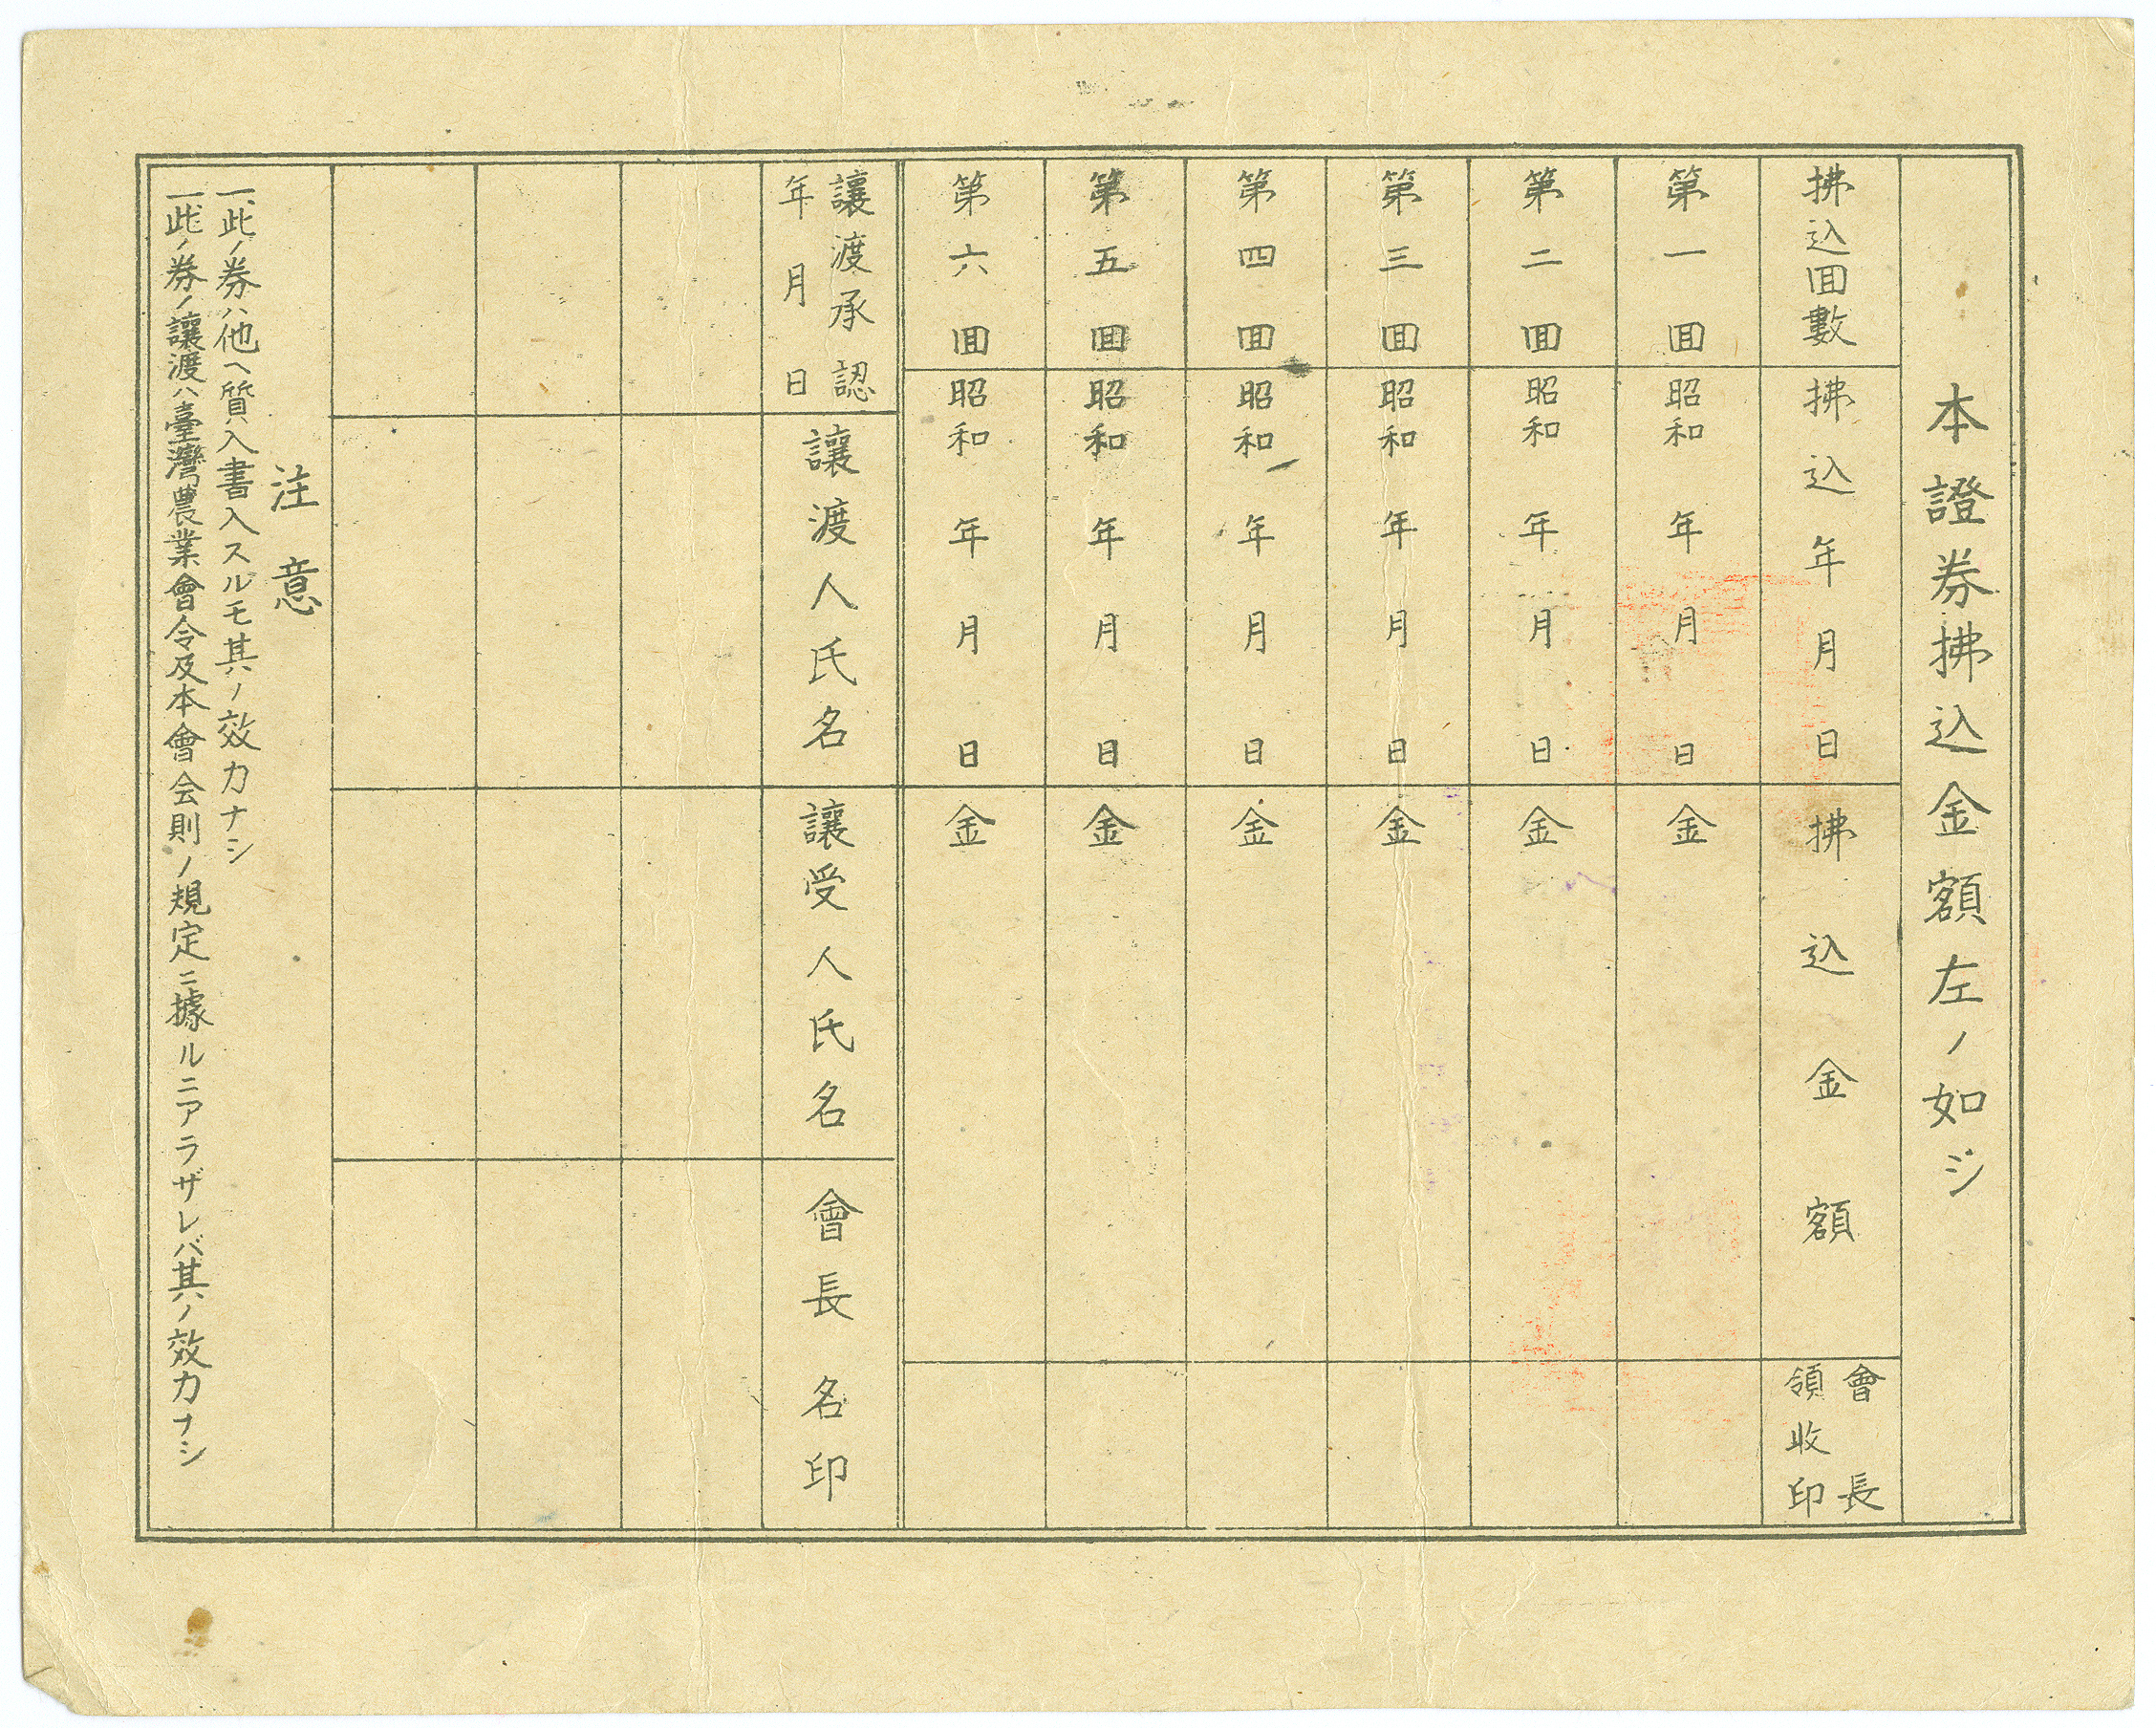 本證券拂込金額左ノ如シ
拂込囬數
拂込年月日
拂込金額
會長
領收印
第一囬
昭和年月日
金
第二囬
昭和年月日
金
第三囬
昭和年月日
金
第四囬
昭和年月日
金
第五囬
昭和年月日
金
第六囬
昭和年月日
金
讓渡承認
年月日
讓渡人氏名
讓受人氏名
會長名印
注意
一、此ノ券ハ他ヘ質入書入スルモ其ノ效力ナシ
一、此ノ券ノ讓渡ハ臺灣農業會令及本會会則ノ規定ニ據ルニアラザレバ其ノ效力ナシ